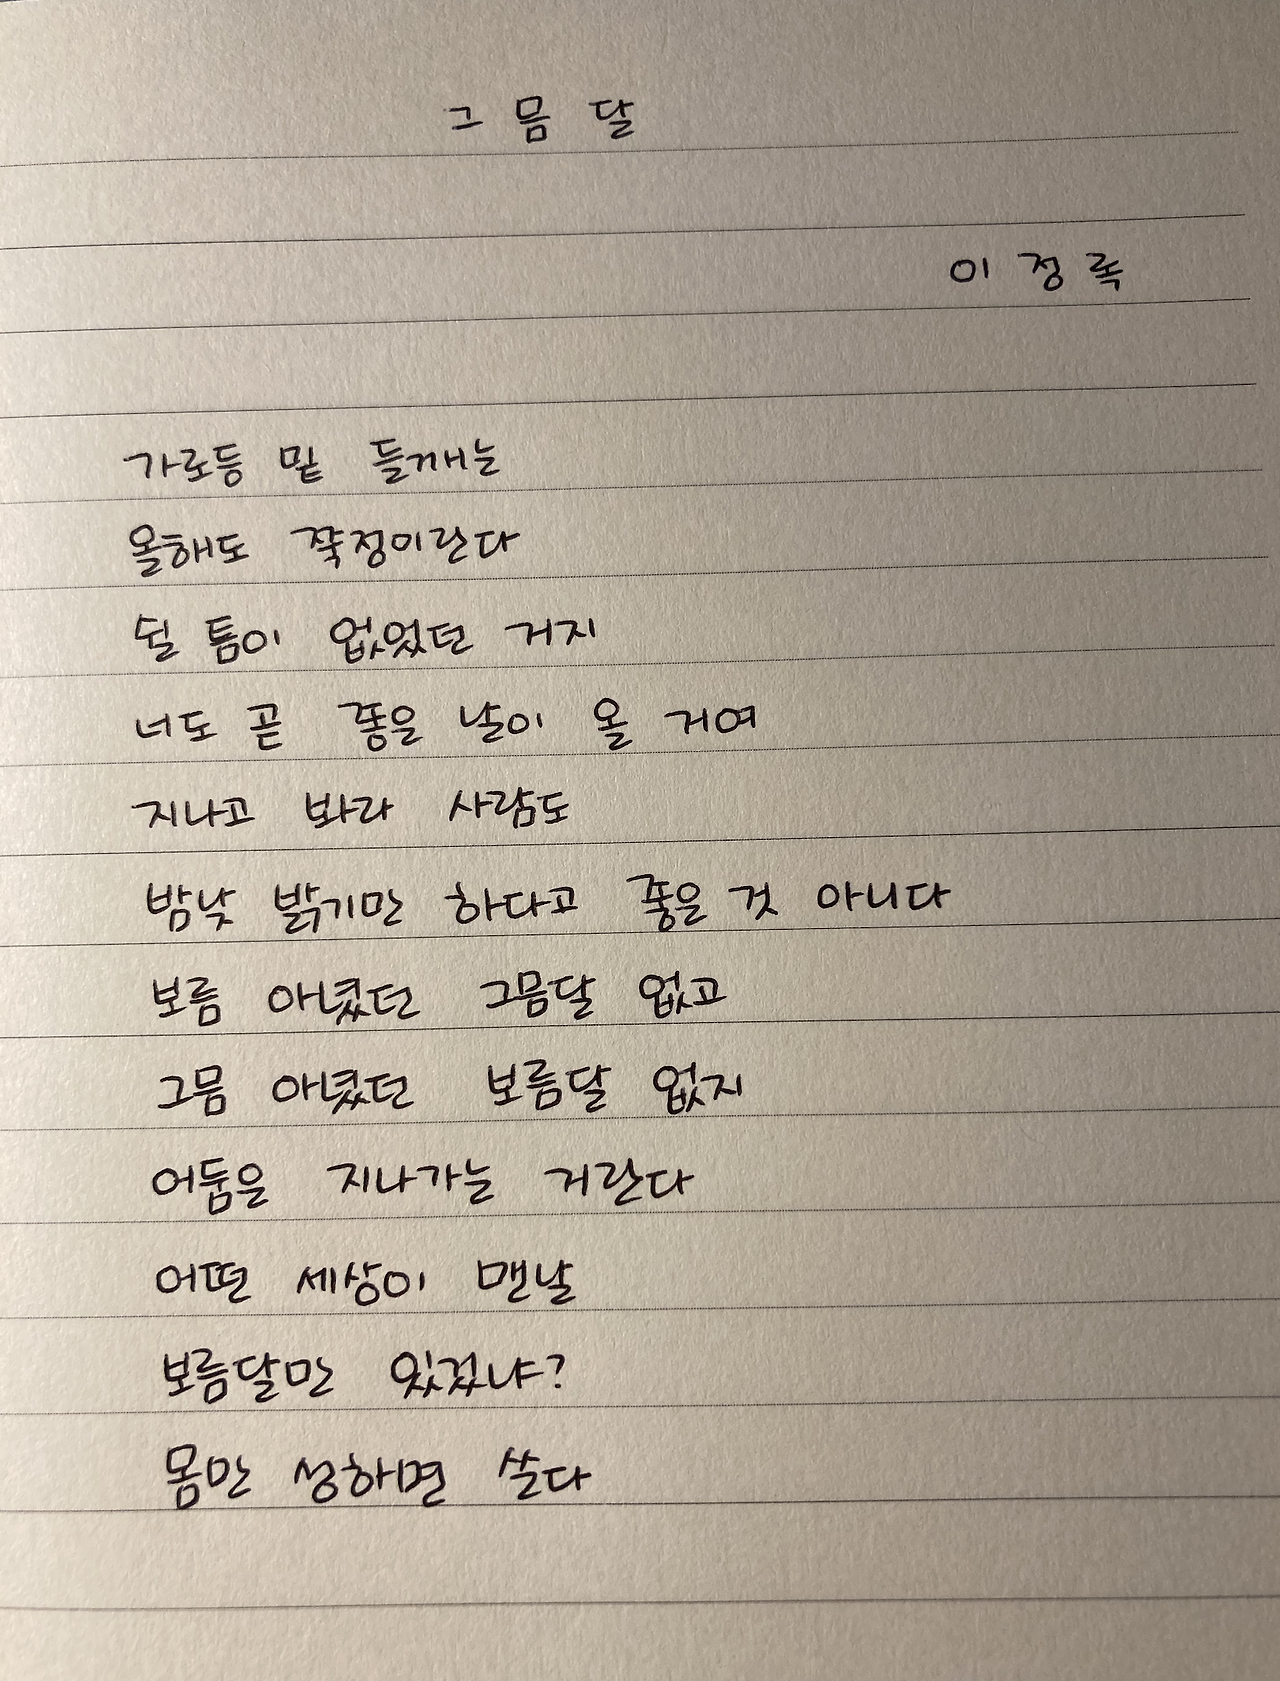 그믐달
이정록
가로등 밑 들깨는
올해도 쭉정이란다
쉴 틈이 없었던 거지
너도 곧 좋은 날이 올 거여
지나고 봐라 사람도
밤낮 밝기만 하다고 좋은 것 아니다
보름 아녔던 그믐달 없고
그믐 아녔던 보름달 없지
어둠은 지나가는 거란다
어떤 세상이 맨날
보름달만 있겄냐?
몸만 성하면 쓴다